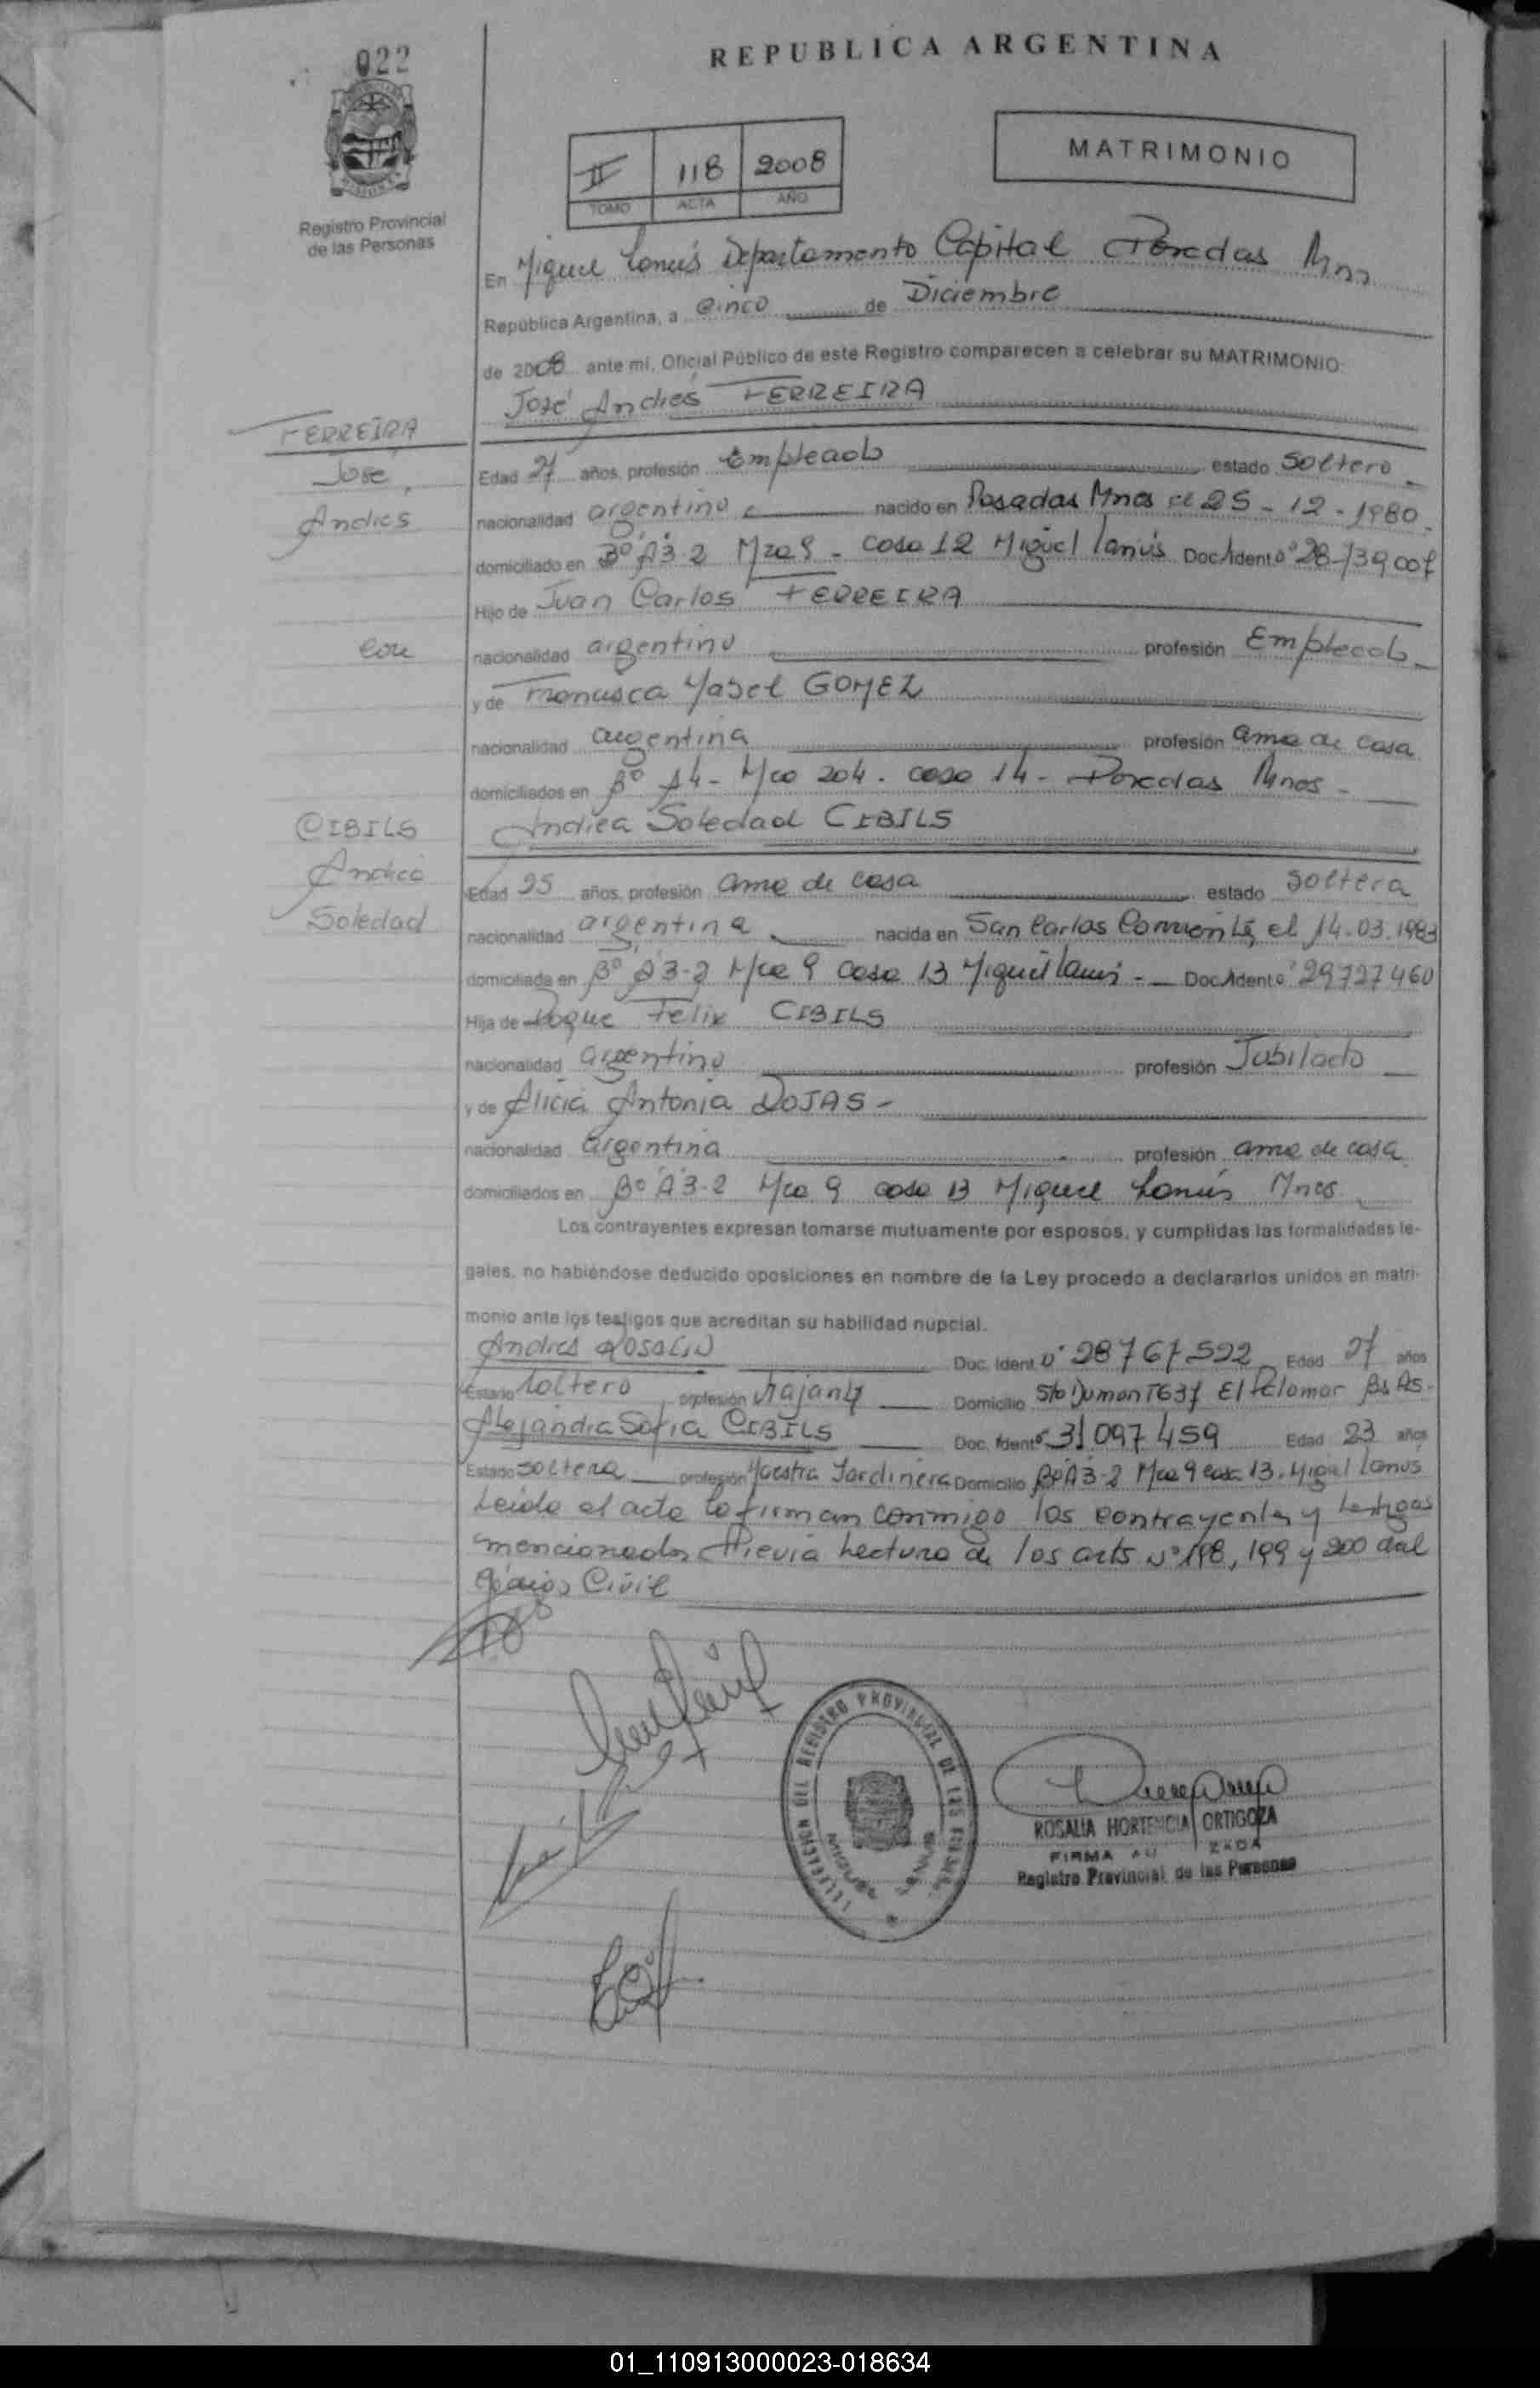 022
REPUBLICA ARGENTINA
MATRIMONIO
II 118 2008
TOMO ACTA AÑO
Registro Provincial
de las Personas
En Miguel Lanús Departamento Capital Posadas Mnes
República Argentina, a Cinco de Diciembre
de 2008 ante mi, Oficial Público de este Registro comparecen a celebrar su MATRIMONIO:
José Andrés FERREIRA
FERREIRA
José
Andrés
Edad 27 años, profesión Empleado estado Soltero
nacionalidad argentino nacido en Posadas Mnes el 25-12-1980.
domiciliado en Bº A3-2 Mza 9 - casa 12 Miguel Lanús Doc. Ident. Nº 28.739.007
Hijo de Juan Carlos FERREIRA
con
nacionalidad argentino profesión Empleado
y de Francisca Mabel GOMEZ
nacionalidad argentina profesión ama de casa
domiciliados en Bº A4 - Mza 204 - casa 14 - Posadas Mnes -
Andrea Soledad CIBILS
CIBILS
Andrea
Soledad
Edad 25 años, profesión ama de casa estado Soltera
nacionalidad argentina nacida en San Carlos Corrientes el 14.03.1983
domiciliada en Bº A3-2 Mza 9 Casa 13 Miguel Lanús - Doc. Ident. Nº 29727460
Hija de Roque Felix CIBILS
nacionalidad argentino profesión Jubilado
y de Alicia Antonia ROJAS -
nacionalidad argentina profesión ama de casa
domiciliados en Bº A3-2 Mza 9 casa 13 Miguel Lanús Mnes
Los contrayentes expresan tomarse mutuamente por esposos, y cumplidas las formalidades le-
gales, no habiéndose deducido oposiciones en nombre de la Ley procedo a declararlos unidos en matri-
monio ante los testigos que acreditan su habilidad nupcial.
Andrés Doc. Ident. Nº 28767522 Edad 27 años
Estado Soltero profesión Domicilio Sto Dumont 637 El Palomar Bs As.
Alejandra Sofia CIBILS Doc. Ident. Nº 31097459 Edad 23 años
Estado soltera profesión Maestra Jardinera Domicilio Bº A3-2 Mza 9 casa 13. Miguel Lanús
Leida el acta la firman conmigo los contrayentes y testigos
mencionados Previa Lectura de los arts Nº 198, 199 y 200 del
Código Civil
DELEGACION DEL REGISTRO PROVINCIAL DE LAS PERSONAS
MIGUEL LANUS
ROSALIA HORTENCIA ORTIGOZA
FIRMA AUTORIZADA
Registro Provincial de las Personas
01_110913000023-018634